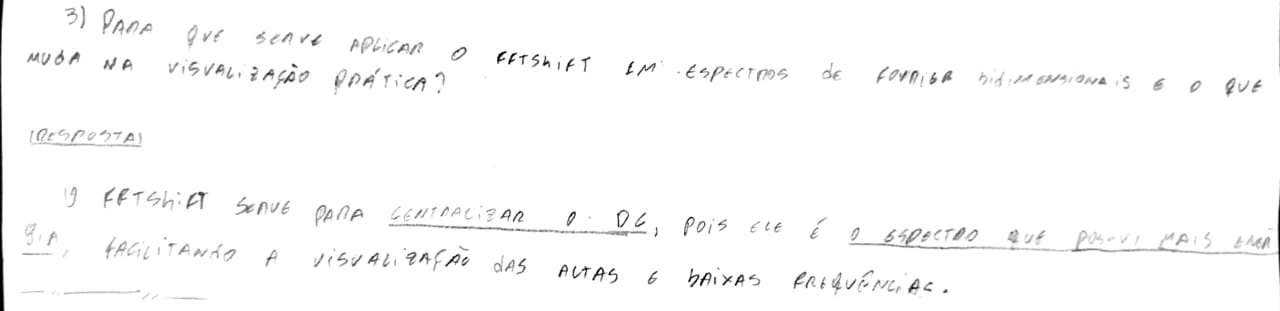 3) PARA QUE SERVE APLICAR O FFTShiFT EM ESPECTROS de FOURIER bidiMENSIONAIS E O QUE
MUDA NA VISUALIZAÇÃO PRÁTICA?
(RESPOSTA)
O FFTShiFT SERVE PARA CENTRALIZAR O DC, POIS ELE É O ESPECTRO QUE POSSUI MAIS ENER
GIA, FACILITANDO A VISUALIZAÇÃO dAS ALTAS E bAIXAS FREQUÊNCIAS.